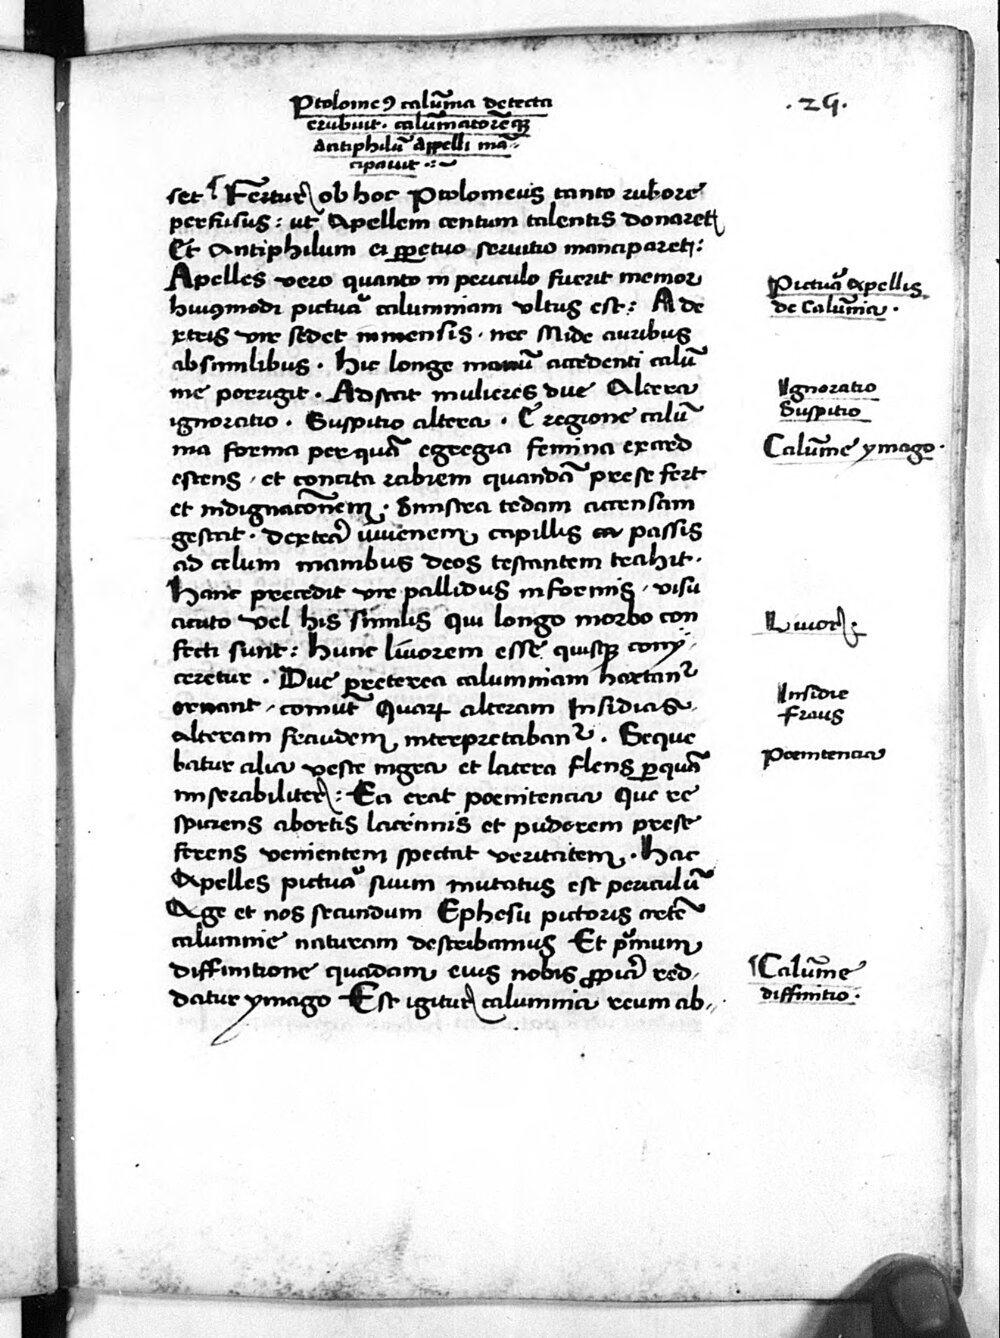 .29.
Ptolomeꝰ calūnia detecta
erubuit. calūniatorēqꝫ
antiphilū appelli mā-
cipauit
set Fertur ob hoc Ptolomeus tanto rubore
perfusus: ut Apellem centum talentis donaret
Et Antiphilum ei ꝑpetuo seruitio manciparet:
Apelles vero quanto in periculo fuerit memor
huiꝰmodi pictuᷓ calumniam ultus est: A de
xteris vir sedet inmensis. nec Mide auribus
absimilibus. Hic longe manū accedenti calū
nie porrigit. Adstāt mulieres due Altera
ignoratio. Suspitio altera. E regione calū
nia forma perquā egregia femina exced
estens, et concita rabiem quandā prese fert
et indignacōnem. Sinistra tedam accensam
gestat. dextra iuuenem capillis passis
ad celum manibus deos testantem trahit.
Hanc precedit vir pallidus informis, visu
acuto vel his similis qui longo morbo con
fecti sunt: hunc liuorem esse quisqꝫ conij
ceretur. Due preterea calumniam hortant᷑
ornant, comūt Quarꝝ alteram Insidias,
alteram fraudem interpretabant᷑. Seque
batur alia veste nigra et lacera flens ꝑquā
miserabiliter: Ea erat poenitencia Que re
spiciens abortis lacrimis et pudorem prese
ferens venientem spectat veritatem. Hac
Apelles pictuᷓ suum mutatus est periculū
Age et nos secundum Ephesii pictoris artē
calumnie naturam describamus Et pᷤmum
diffinitione quadam eius nobis ꝓpria red-
datur ymago Est igitur calumnia reum ab-
Pictuᷓ Apellis
de Calūnia.
Ignoratio
Suspitio
Calūnie ymago.
Liuor.
Insidie
Fraus
Poenitencia
Calūnie
diffinitio.